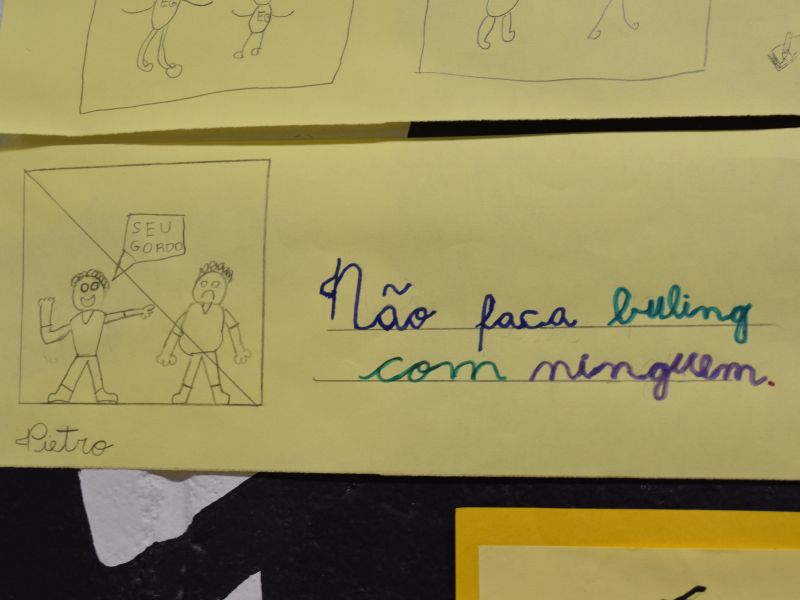 EG
EG
SEU
GORDO
Não faca buling
com ninguem.
Pietro